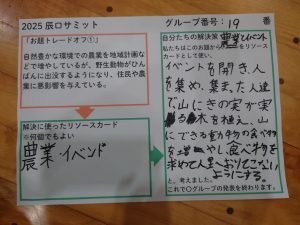 2025 辰口サミット
グループ番号: 19 番
「お題トレードオフ①」
自然豊かな環境での農業を地域計画な
どで増やしているが、野生動物がひん
ぱんに出没するようになり、住民や農
業に悪影響を与えている。
解決に使ったリソースカード
※何個でもよい
農業 イベント
自分たちの解決策 農業とイベント
私たちはこのお題から をリソース
カードとして使い、
イベントを開き、人
を集め、集まった人達
で山に木の実が実
る木を植え、山
にできる動物の食べ物
を増やし、食べ物を
求めて人里へおりてこない
ようにする。
と、考えました。
これで〇グループの発表を終わります。